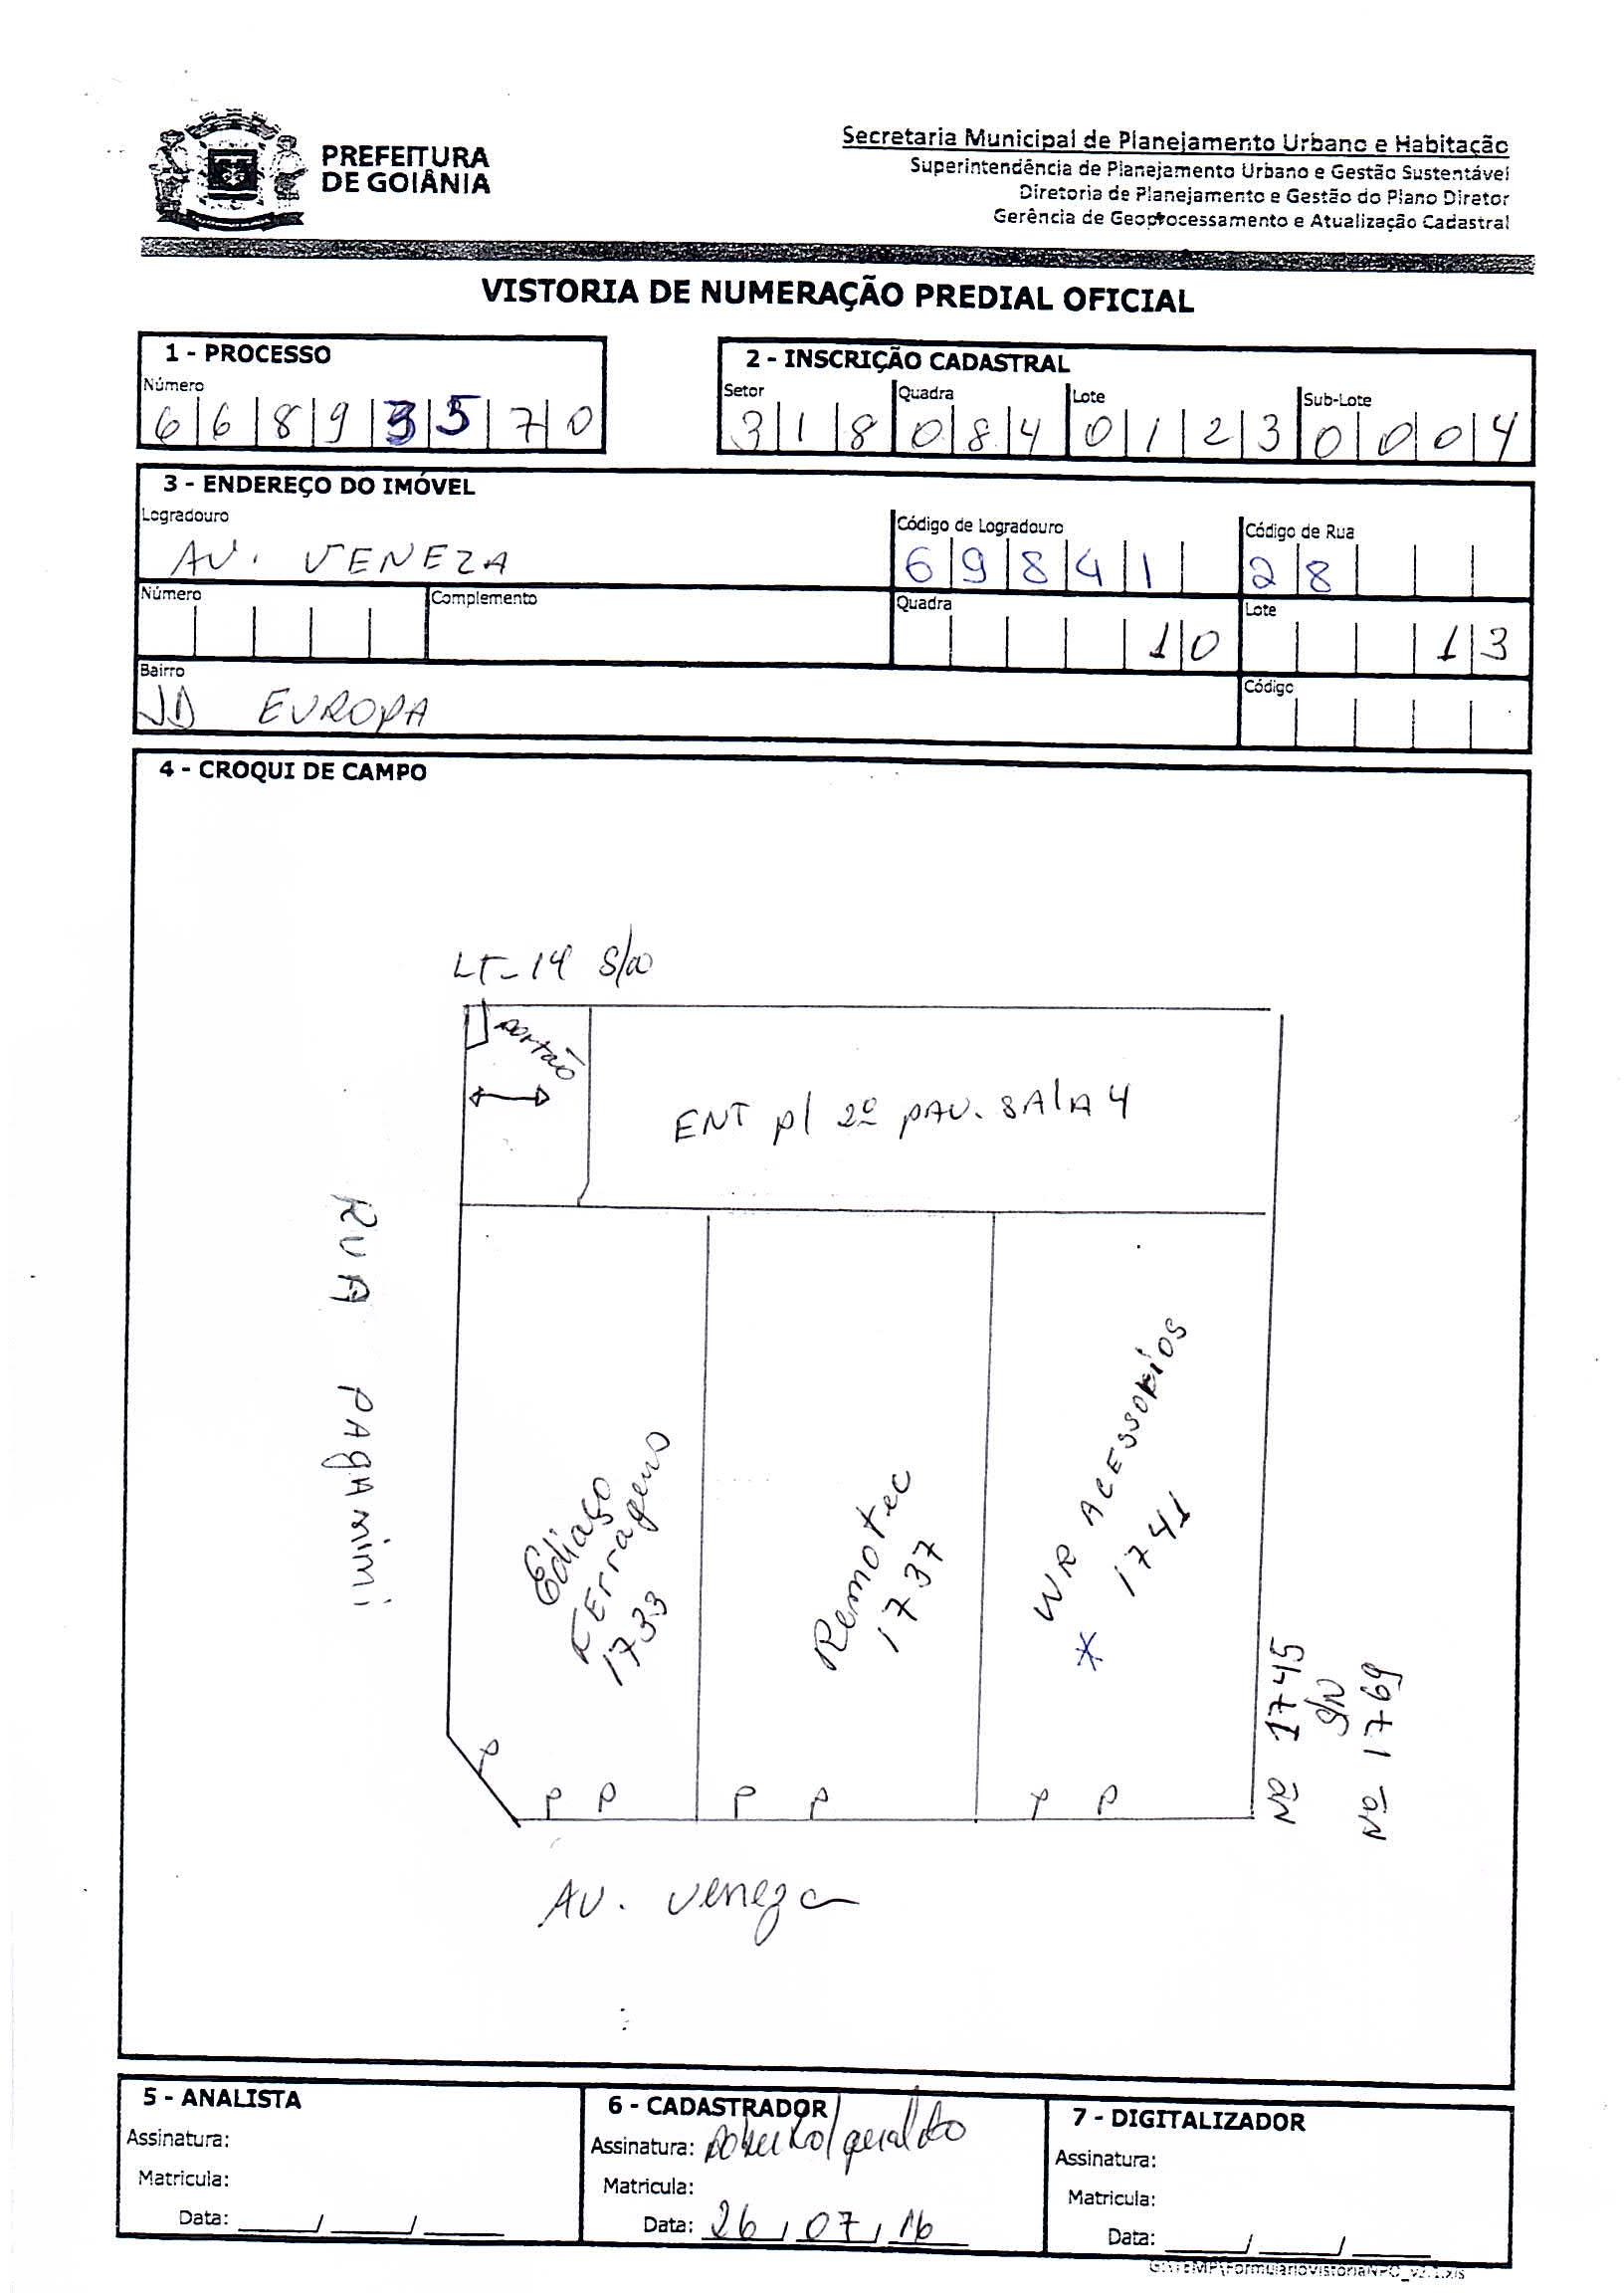 PREFEITURA
DE GOIÂNIA
Secretaria Municipal de Planejamento Urbano e Habitação
Superintendência de Planejamento Urbano e Gestão Sustentável
Diretoria de Planejamento e Gestão do Plano Diretor
Gerência de Geoprocessamento e Atualização Cadastral
VISTORIA DE NUMERAÇÃO PREDIAL OFICIAL
1 - PROCESSO
Número
6 6 8 9 3 5 7 0
2 - INSCRIÇÃO CADASTRAL
Setor Quadra Lote Sub-Lote
3 1 8 0 8 4 0 1 2 3 0 0 0 4
3 - ENDEREÇO DO IMÓVEL
Logradouro Código de Logradouro Código de Rua
AV. VENEZA 6 9 8 4 1 2 8
Número Complemento Quadra Lote
1 0 1 3
Bairro Código
JD EUROPA
4 - CROQUI DE CAMPO
LT-14 S/N
portão
ENT p/ 2º PAV. SALA 4
RUA PAGANINI
Ediaço
Ferragens
1733
Remotec
1737
WR ACESSORIOS
* 1741
Nº 1745
S/N
Nº 1769
P P P P P P P
AV. Veneza
5 - ANALISTA
Assinatura:
Matricula:
Data: ____/____/____
6 - CADASTRADOR
Assinatura:
Matricula:
Data: 26/07/16
7 - DIGITALIZADOR
Assinatura:
Matricula:
Data: ____/____/____
G:\TEMP\FormularioVistoriaNPO_v2.1.xls